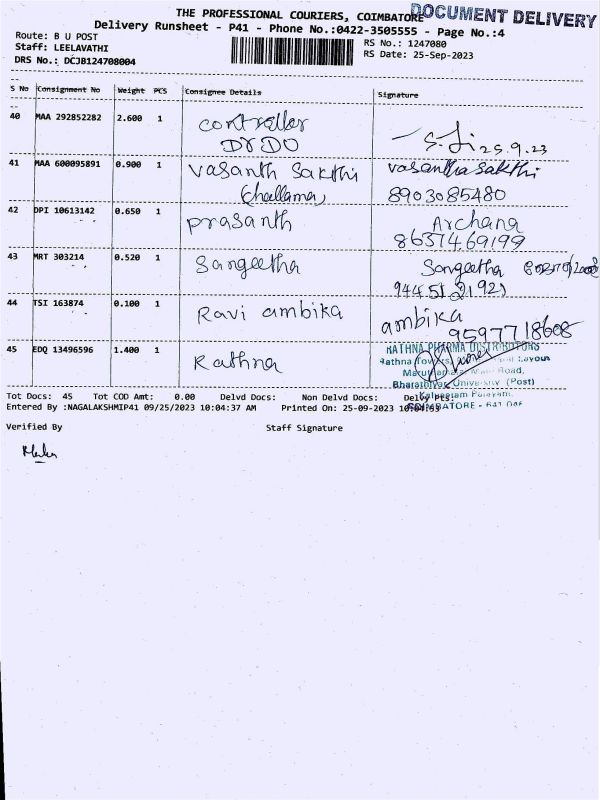 THE PROFESSIONAL COURIERS, COIMBATORE
DOCUMENT DELIVERY
Delivery Runsheet - P41 - Phone No.:0422-3505555 - Page No.:4
Route: B U POST
RS No.: 1247080
Staff: LEELAVATHI
RS Date: 25-Sep-2023
DRS No.: DCJB124708004
S No Consignment No Weight PCS Consignee Details Signature
40 MAA 292852282 2.600 1 controller
DRDO
25.9.23
41 MAA 600095891 0.900 1 vasanth Sakthi vasantha sakthi
(chellama) 8903085480
42 DPI 10613142 0.650 1 prasanth Archana
8637469199
43 MRT 303214 0.520 1 Sangeetha Sangeetha
44 TSI 163874 0.100 1 Ravi ambika ambika
9597718608
45 EDQ 13496596 1.400 1 Rathna
RATHNA PHARMA DISTRIBUTORS
Rathna Towers, Layout
Road,
Bharathiyar University (Post)
Kalveeram Palayam,
COIMBATORE - 641 046
Tot Docs: 45 Tot COD Amt: 0.00 Delvd Docs: Non Delvd Docs: Delvy Pts:
Entered By :NAGALAKSHMIP41 09/25/2023 10:04:37 AM Printed On: 25-09-2023
Verified By Staff Signature